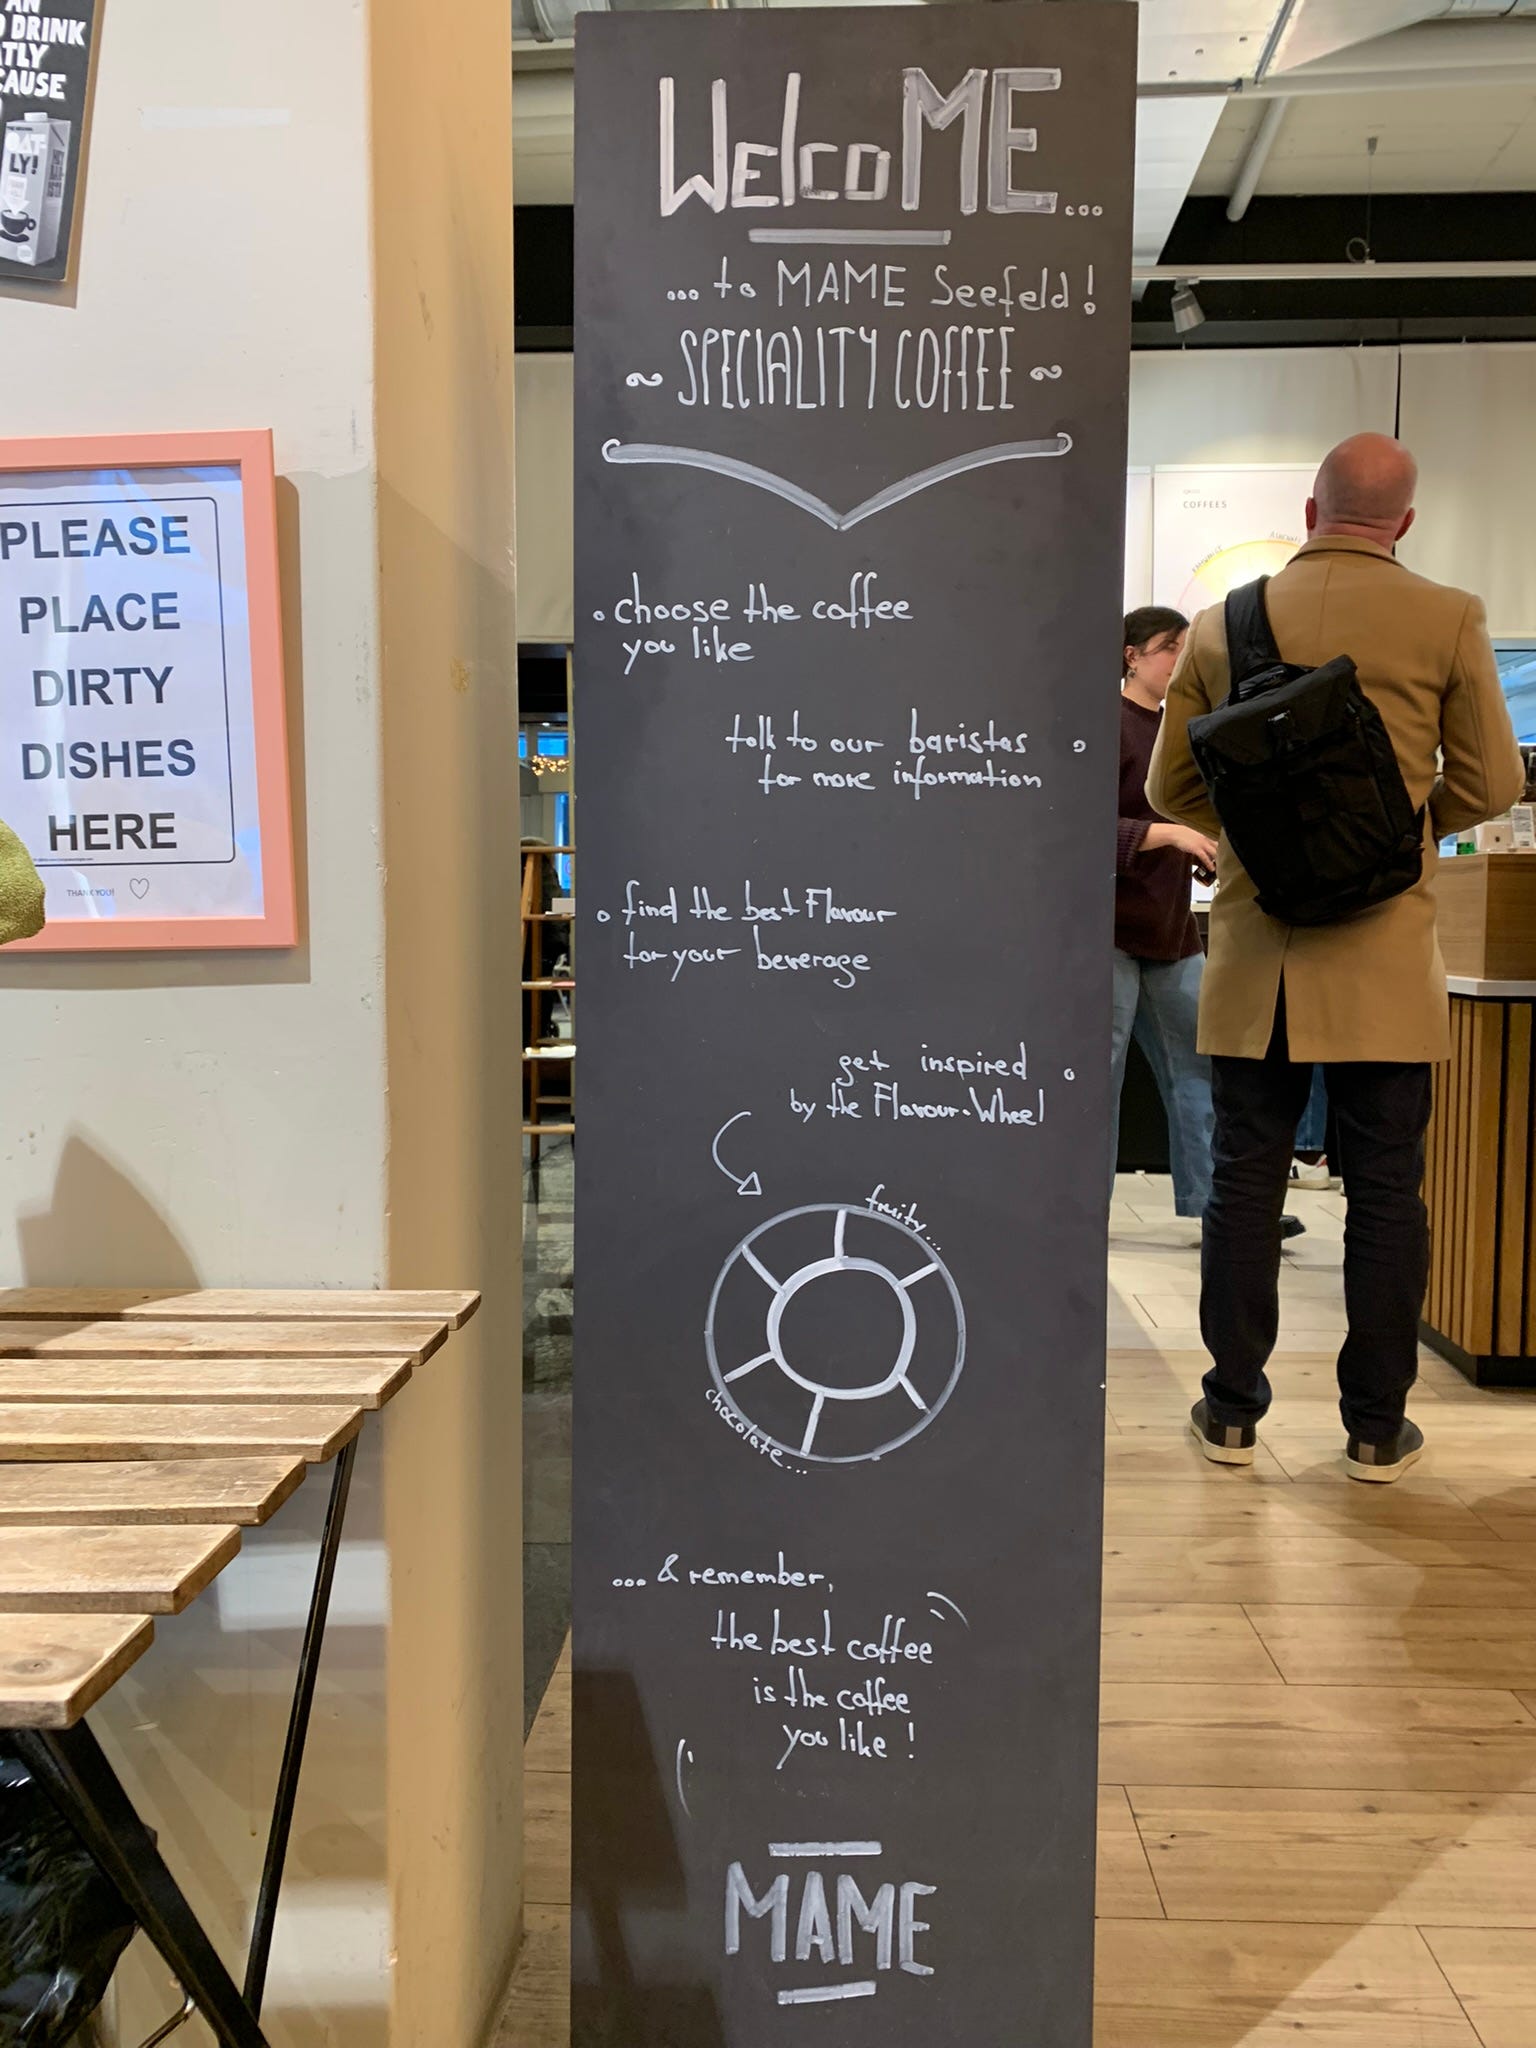 AN
DRINK
ATLY
CAUSE
OAT-
LY!
PLEASE
PLACE
DIRTY
DISHES
HERE
THANK YOU!
WelcoME...
... to MAME Seefeld!
~ SPECIALITY COFFEE ~
• choose the coffee
you like
talk to our baristas •
for more information
• find the best Flavour
for your beverage
get inspired •
by the Flavour-Wheel
fruity...
chocolate...
... & remember,
the best coffee
is the coffee
you like!
MAME
COFFEES